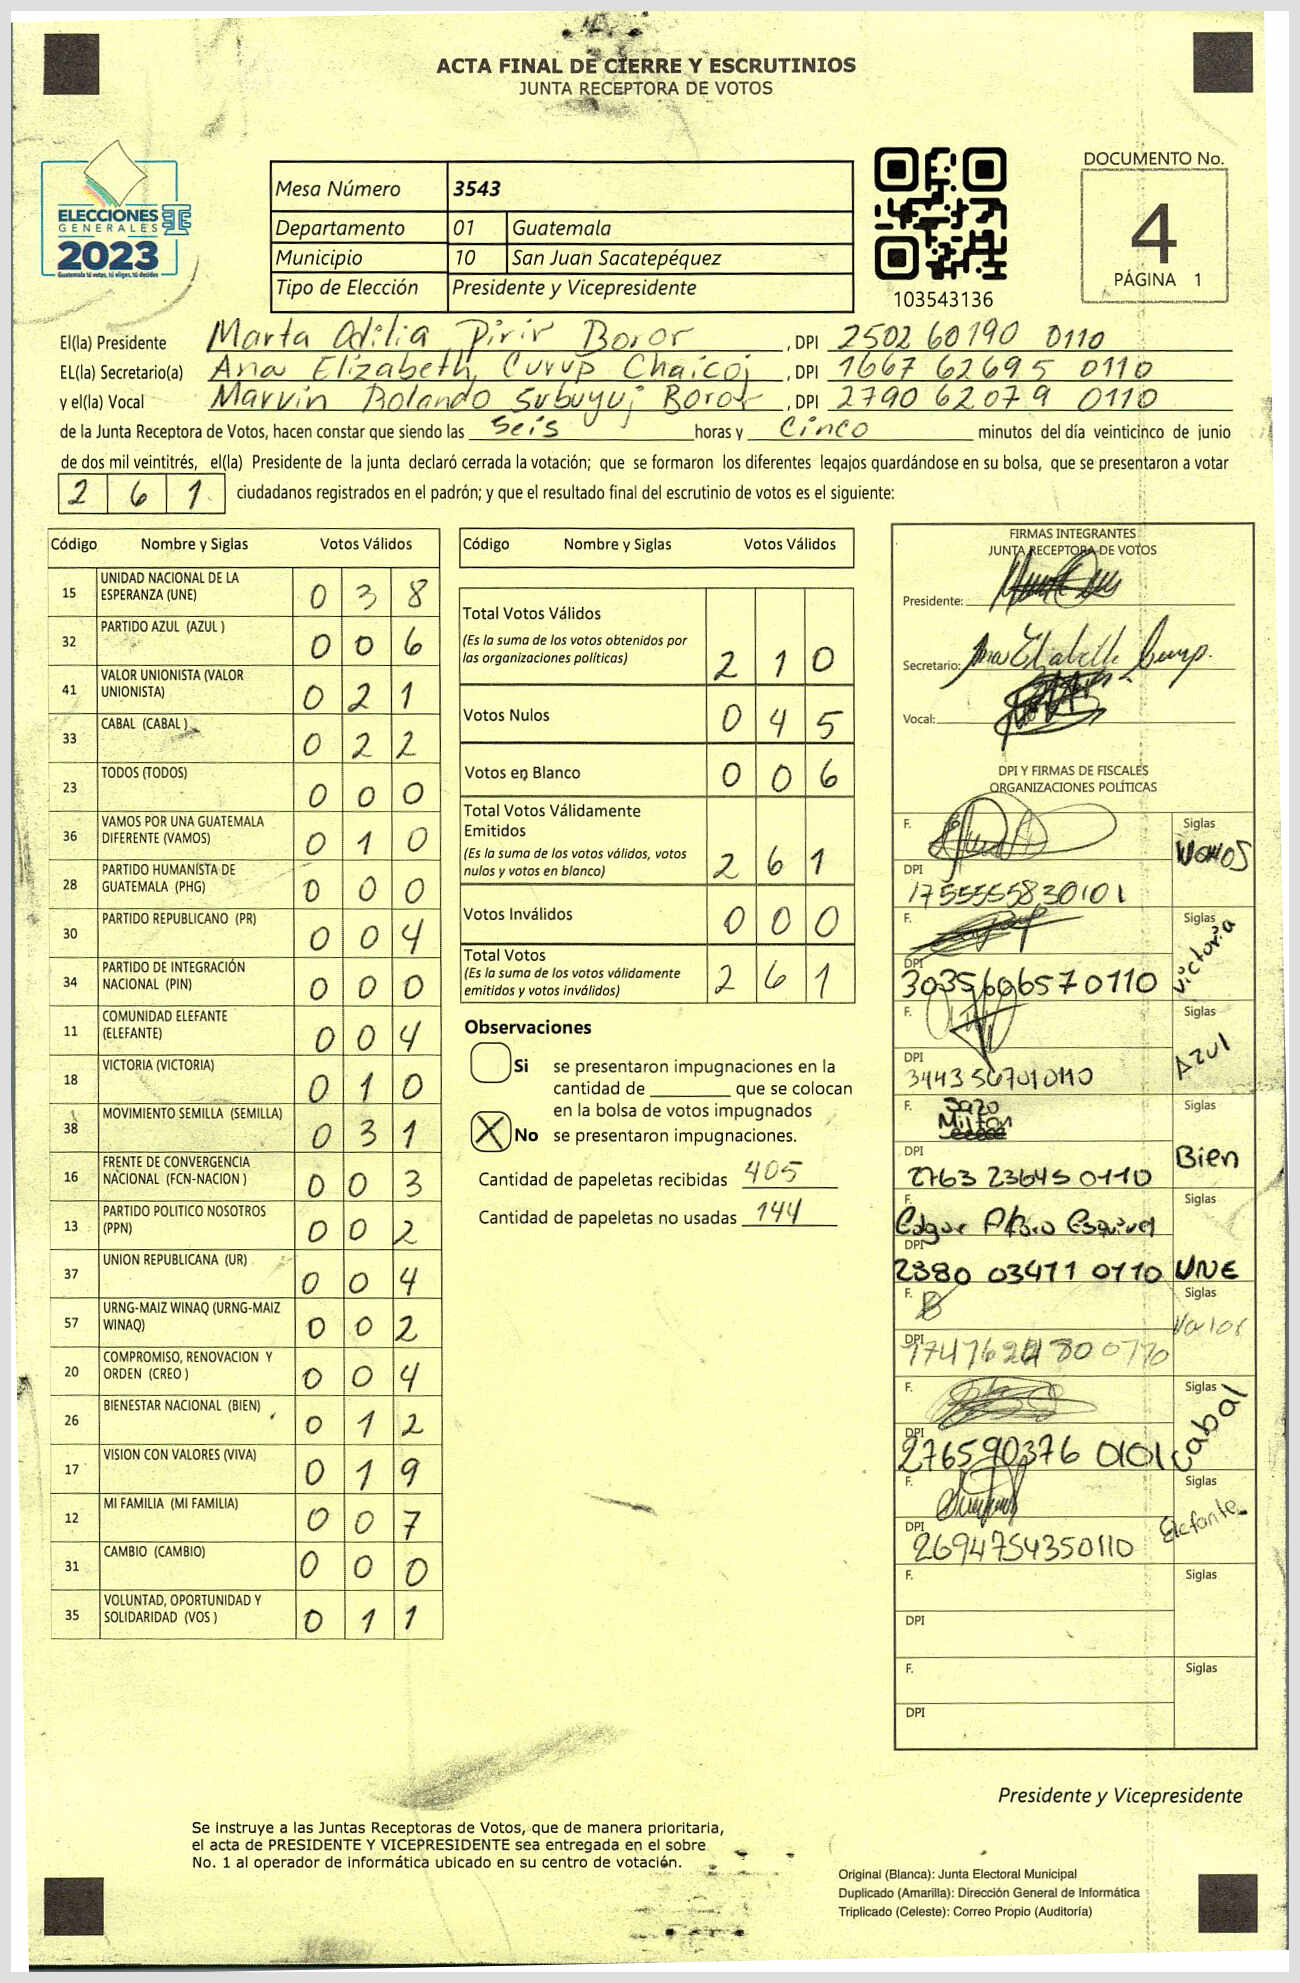 ACTA FINAL DE CIERRE Y ESCRUTINIOS
JUNTA RECEPTORA DE VOTOS
ELECCIONES
GENERALES
2023
Guatemala tú votas, tú eliges, tú decides
Mesa Número 3543
Departamento 01 Guatemala
Municipio 10 San Juan Sacatepéquez
Tipo de Elección Presidente y Vicepresidente
103543136
DOCUMENTO No.
4
PÁGINA 1
El(la) Presidente Marta Odilia Pirir Boror, DPI 2502 60190 0110
EL(la) Secretario(a) Ana Elizabeth Curup Chaicoj, DPI 1667 62695 0110
y el(la) Vocal Marvin Rolando Subuyuj Boror, DPI 2790 62079 0110
de la Junta Receptora de Votos, hacen constar que siendo las seis horas y cinco minutos del día veinticinco de junio
de dos mil veintitrés, el(la) Presidente de la junta declaró cerrada la votación; que se formaron los diferentes legajos guardándose en su bolsa, que se presentaron a votar
261 ciudadanos registrados en el padrón; y que el resultado final del escrutinio de votos es el siguiente:
Código Nombre y Siglas Votos Válidos
15 UNIDAD NACIONAL DE LA ESPERANZA (UNE) 038
32 PARTIDO AZUL (AZUL ) 006
41 VALOR UNIONISTA (VALOR UNIONISTA) 021
33 CABAL (CABAL ) 022
23 TODOS (TODOS) 000
36 VAMOS POR UNA GUATEMALA DIFERENTE (VAMOS) 010
28 PARTIDO HUMANISTA DE GUATEMALA (PHG) 000
30 PARTIDO REPUBLICANO (PR) 004
34 PARTIDO DE INTEGRACIÓN NACIONAL (PIN) 000
11 COMUNIDAD ELEFANTE (ELEFANTE) 004
18 VICTORIA (VICTORIA) 010
38 MOVIMIENTO SEMILLA (SEMILLA) 031
16 FRENTE DE CONVERGENCIA NACIONAL (FCN-NACION ) 003
13 PARTIDO POLITICO NOSOTROS (PPN) 002
37 UNION REPUBLICANA (UR) 004
57 URNG-MAIZ WINAQ (URNG-MAIZ WINAQ) 002
20 COMPROMISO, RENOVACION Y ORDEN (CREO ) 004
26 BIENESTAR NACIONAL (BIEN) 012
17 VISION CON VALORES (VIVA) 019
12 MI FAMILIA (MI FAMILIA) 007
31 CAMBIO (CAMBIO) 000
35 VOLUNTAD, OPORTUNIDAD Y SOLIDARIDAD (VOS ) 011
Código Nombre y Siglas Votos Válidos
Total Votos Válidos 210
(Es la suma de los votos obtenidos por
las organizaciones políticas)
Votos Nulos 045
Votos en Blanco 006
Total Votos Válidamente
Emitidos
(Es la suma de los votos válidos, votos
nulos y votos en blanco) 261
Votos Inválidos 000
Total Votos
(Es la suma de los votos válidamente
emitidos y votos inválidos) 261
Observaciones
Si se presentaron impugnaciones en la
cantidad de ________ que se colocan
en la bolsa de votos impugnados
X No se presentaron impugnaciones.
Cantidad de papeletas recibidas 405
Cantidad de papeletas no usadas 144
FIRMAS INTEGRANTES
JUNTA RECEPTORA DE VOTOS
Presidente:
Secretario: Ana Elizabeth Curup.
Vocal:
DPI Y FIRMAS DE FISCALES
ORGANIZACIONES POLÍTICAS
F. Siglas Vamos
DPI 1755555830101
F. Siglas Victoria
DPI 3035606570110
F. Siglas Azul
DPI 3443567010110
F. Sazo Milton Siglas Bien
DPI 2763 23645 0110
F. Edgar Esquivel Siglas UNE
DPI 2380 03471 0110
F. Siglas Valor
DPI
F. Siglas Cabal
DPI 276590376 0101
F. Siglas Elefante
DPI 2694754350110
F. Siglas
DPI
F. Siglas
DPI
Presidente y Vicepresidente
Se instruye a las Juntas Receptoras de Votos, que de manera prioritaria,
el acta de PRESIDENTE Y VICEPRESIDENTE sea entregada en el sobre
No. 1 al operador de informática ubicado en su centro de votación.
Original (Blanca): Junta Electoral Municipal
Duplicado (Amarilla): Dirección General de Informática
Triplicado (Celeste): Correo Propio (Auditoría)